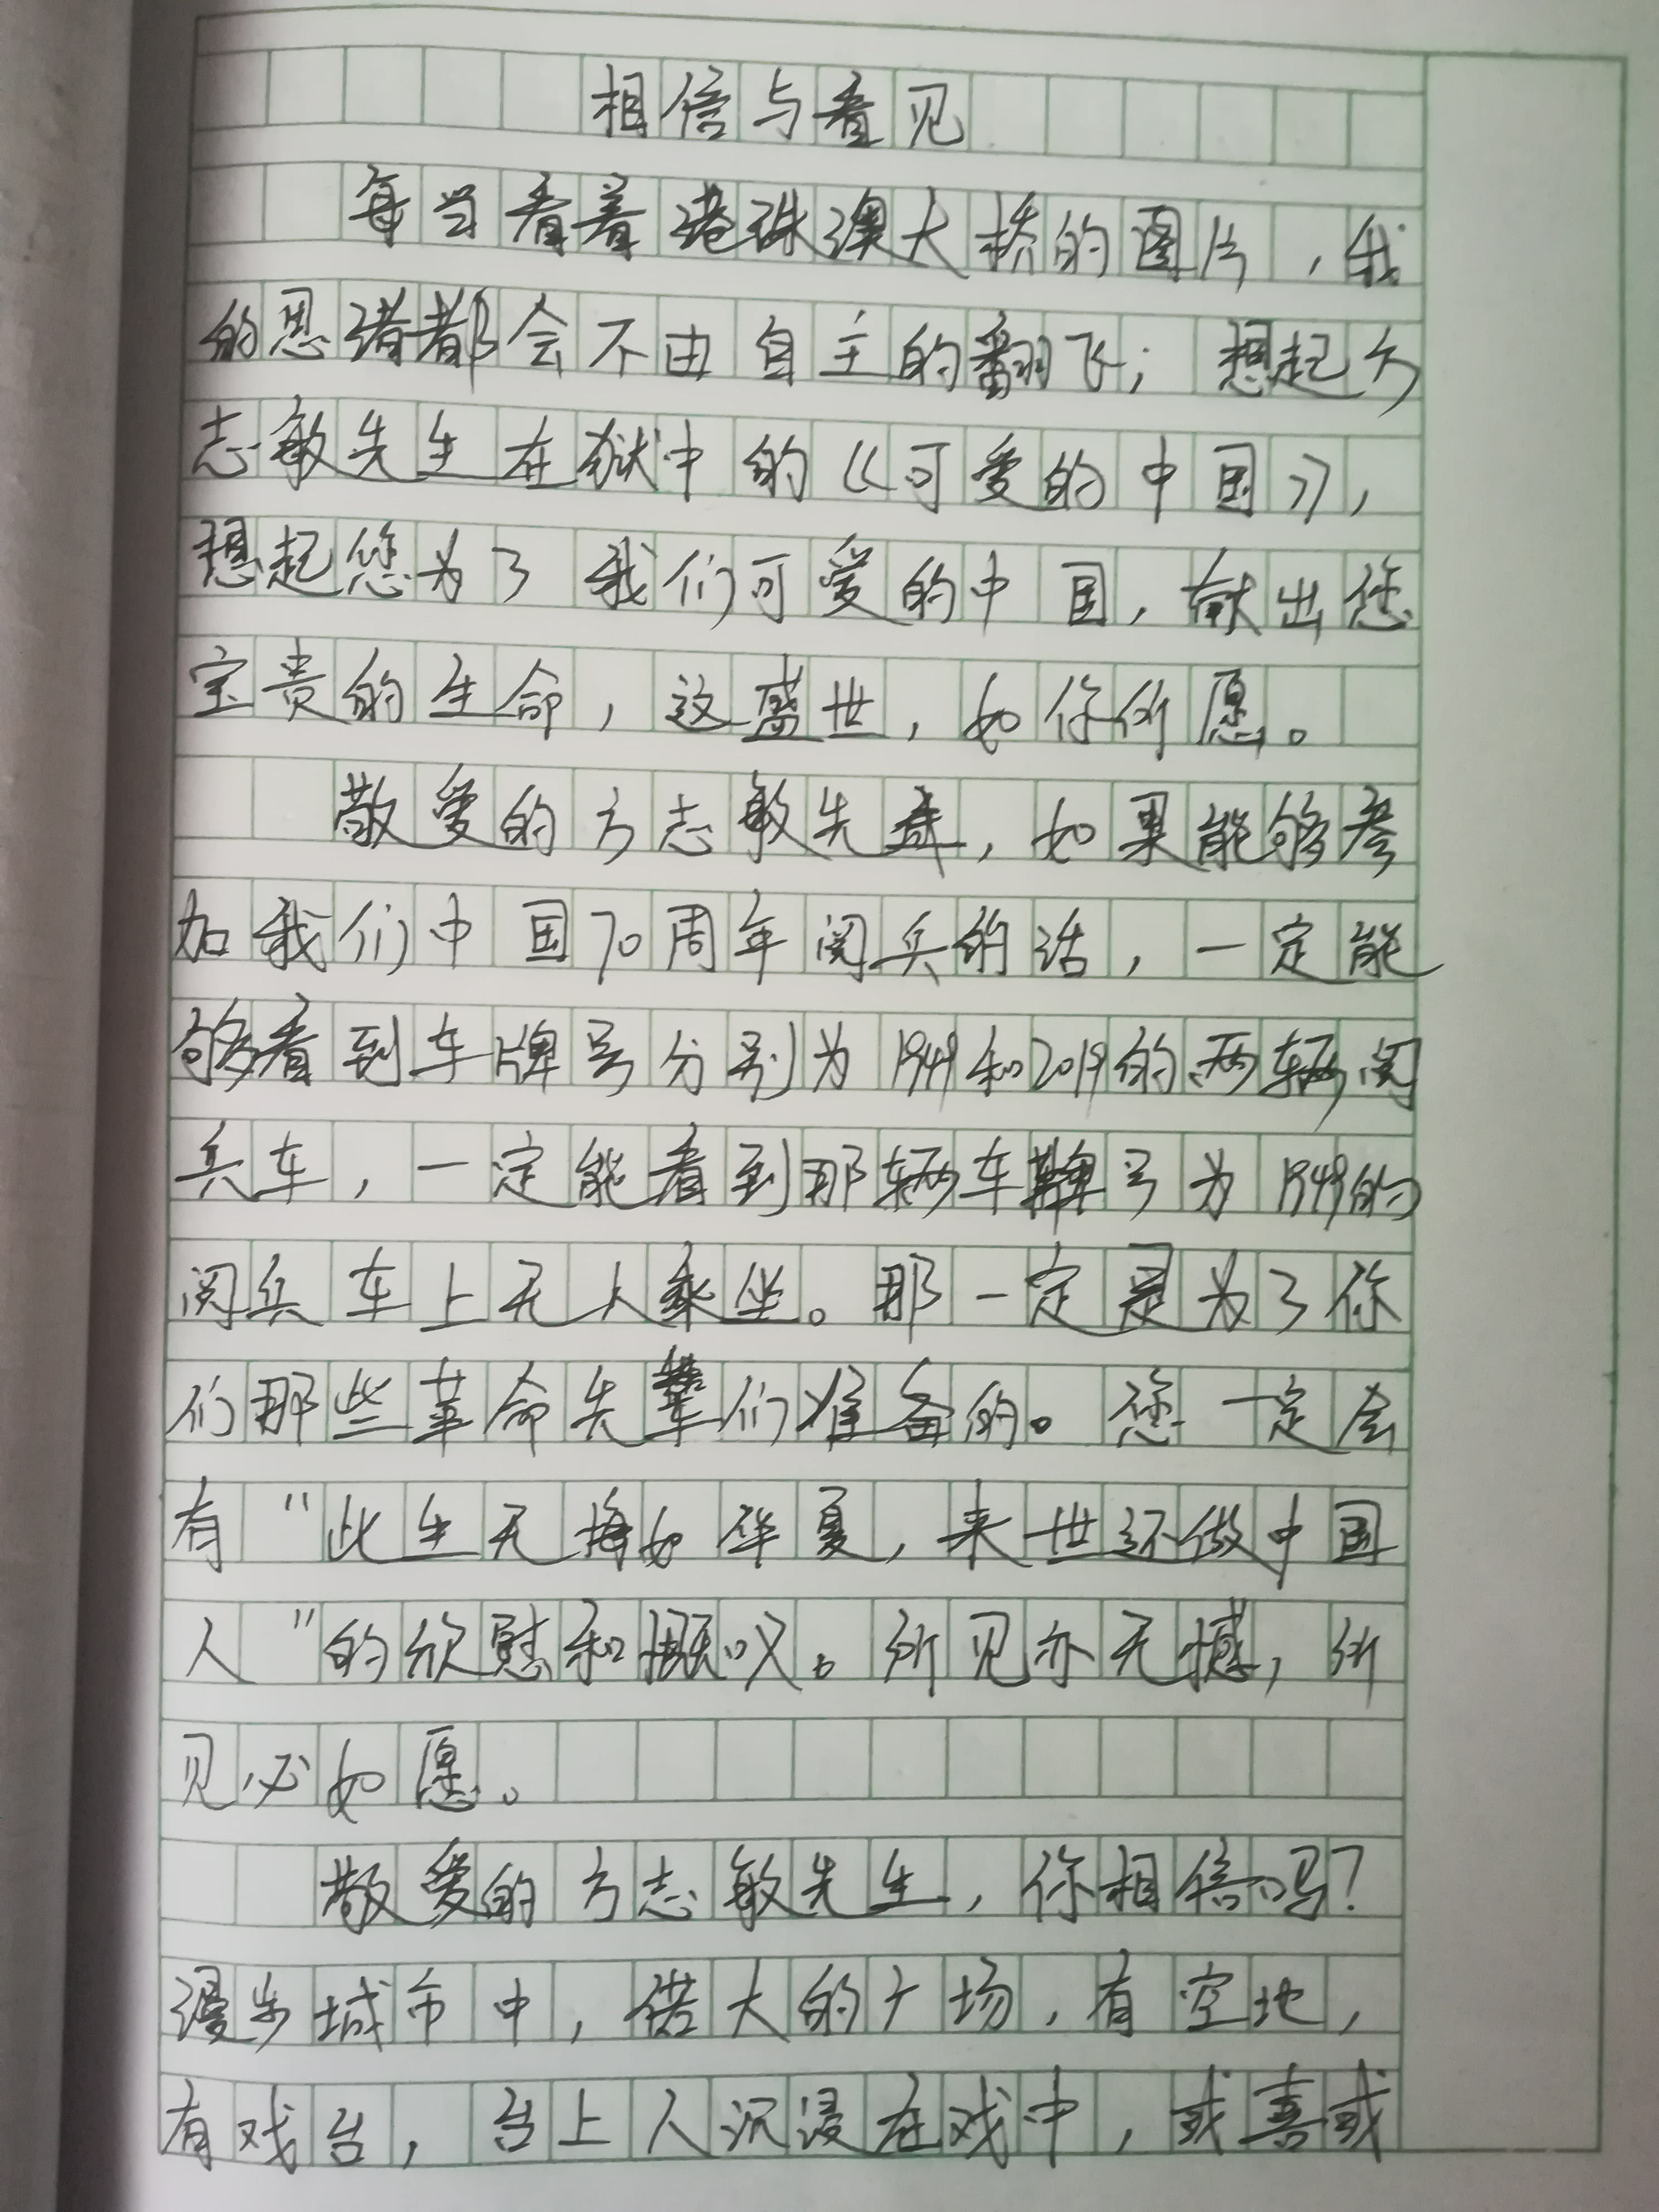 相信与看见
每当看着港珠澳大桥的图片，我
的思绪都会不由自主的翻飞；想起方
志敏先生在狱中的《可爱的中国》，
想起您为了我们可爱的中国，献出您
宝贵的生命，这盛世，如你所愿。
敬爱的方志敏先生，如果能够参
加我们中国70周年阅兵的话，一定能
够看到车牌号分别为1949和2019的两辆阅
兵车，一定能看到那辆车牌号为1949的
阅兵车上无人乘坐。那一定是为了你
们那些革命先辈们准备的。您一定会
有"此生无悔如华夏，来世还做中国
人"的欣慰和慨叹。所见亦无憾，所
见必如愿。
敬爱的方志敏先生，你相信吗？
漫步城市中，偌大的广场，有空地，
有戏台，台上人沉浸在戏中，或喜或